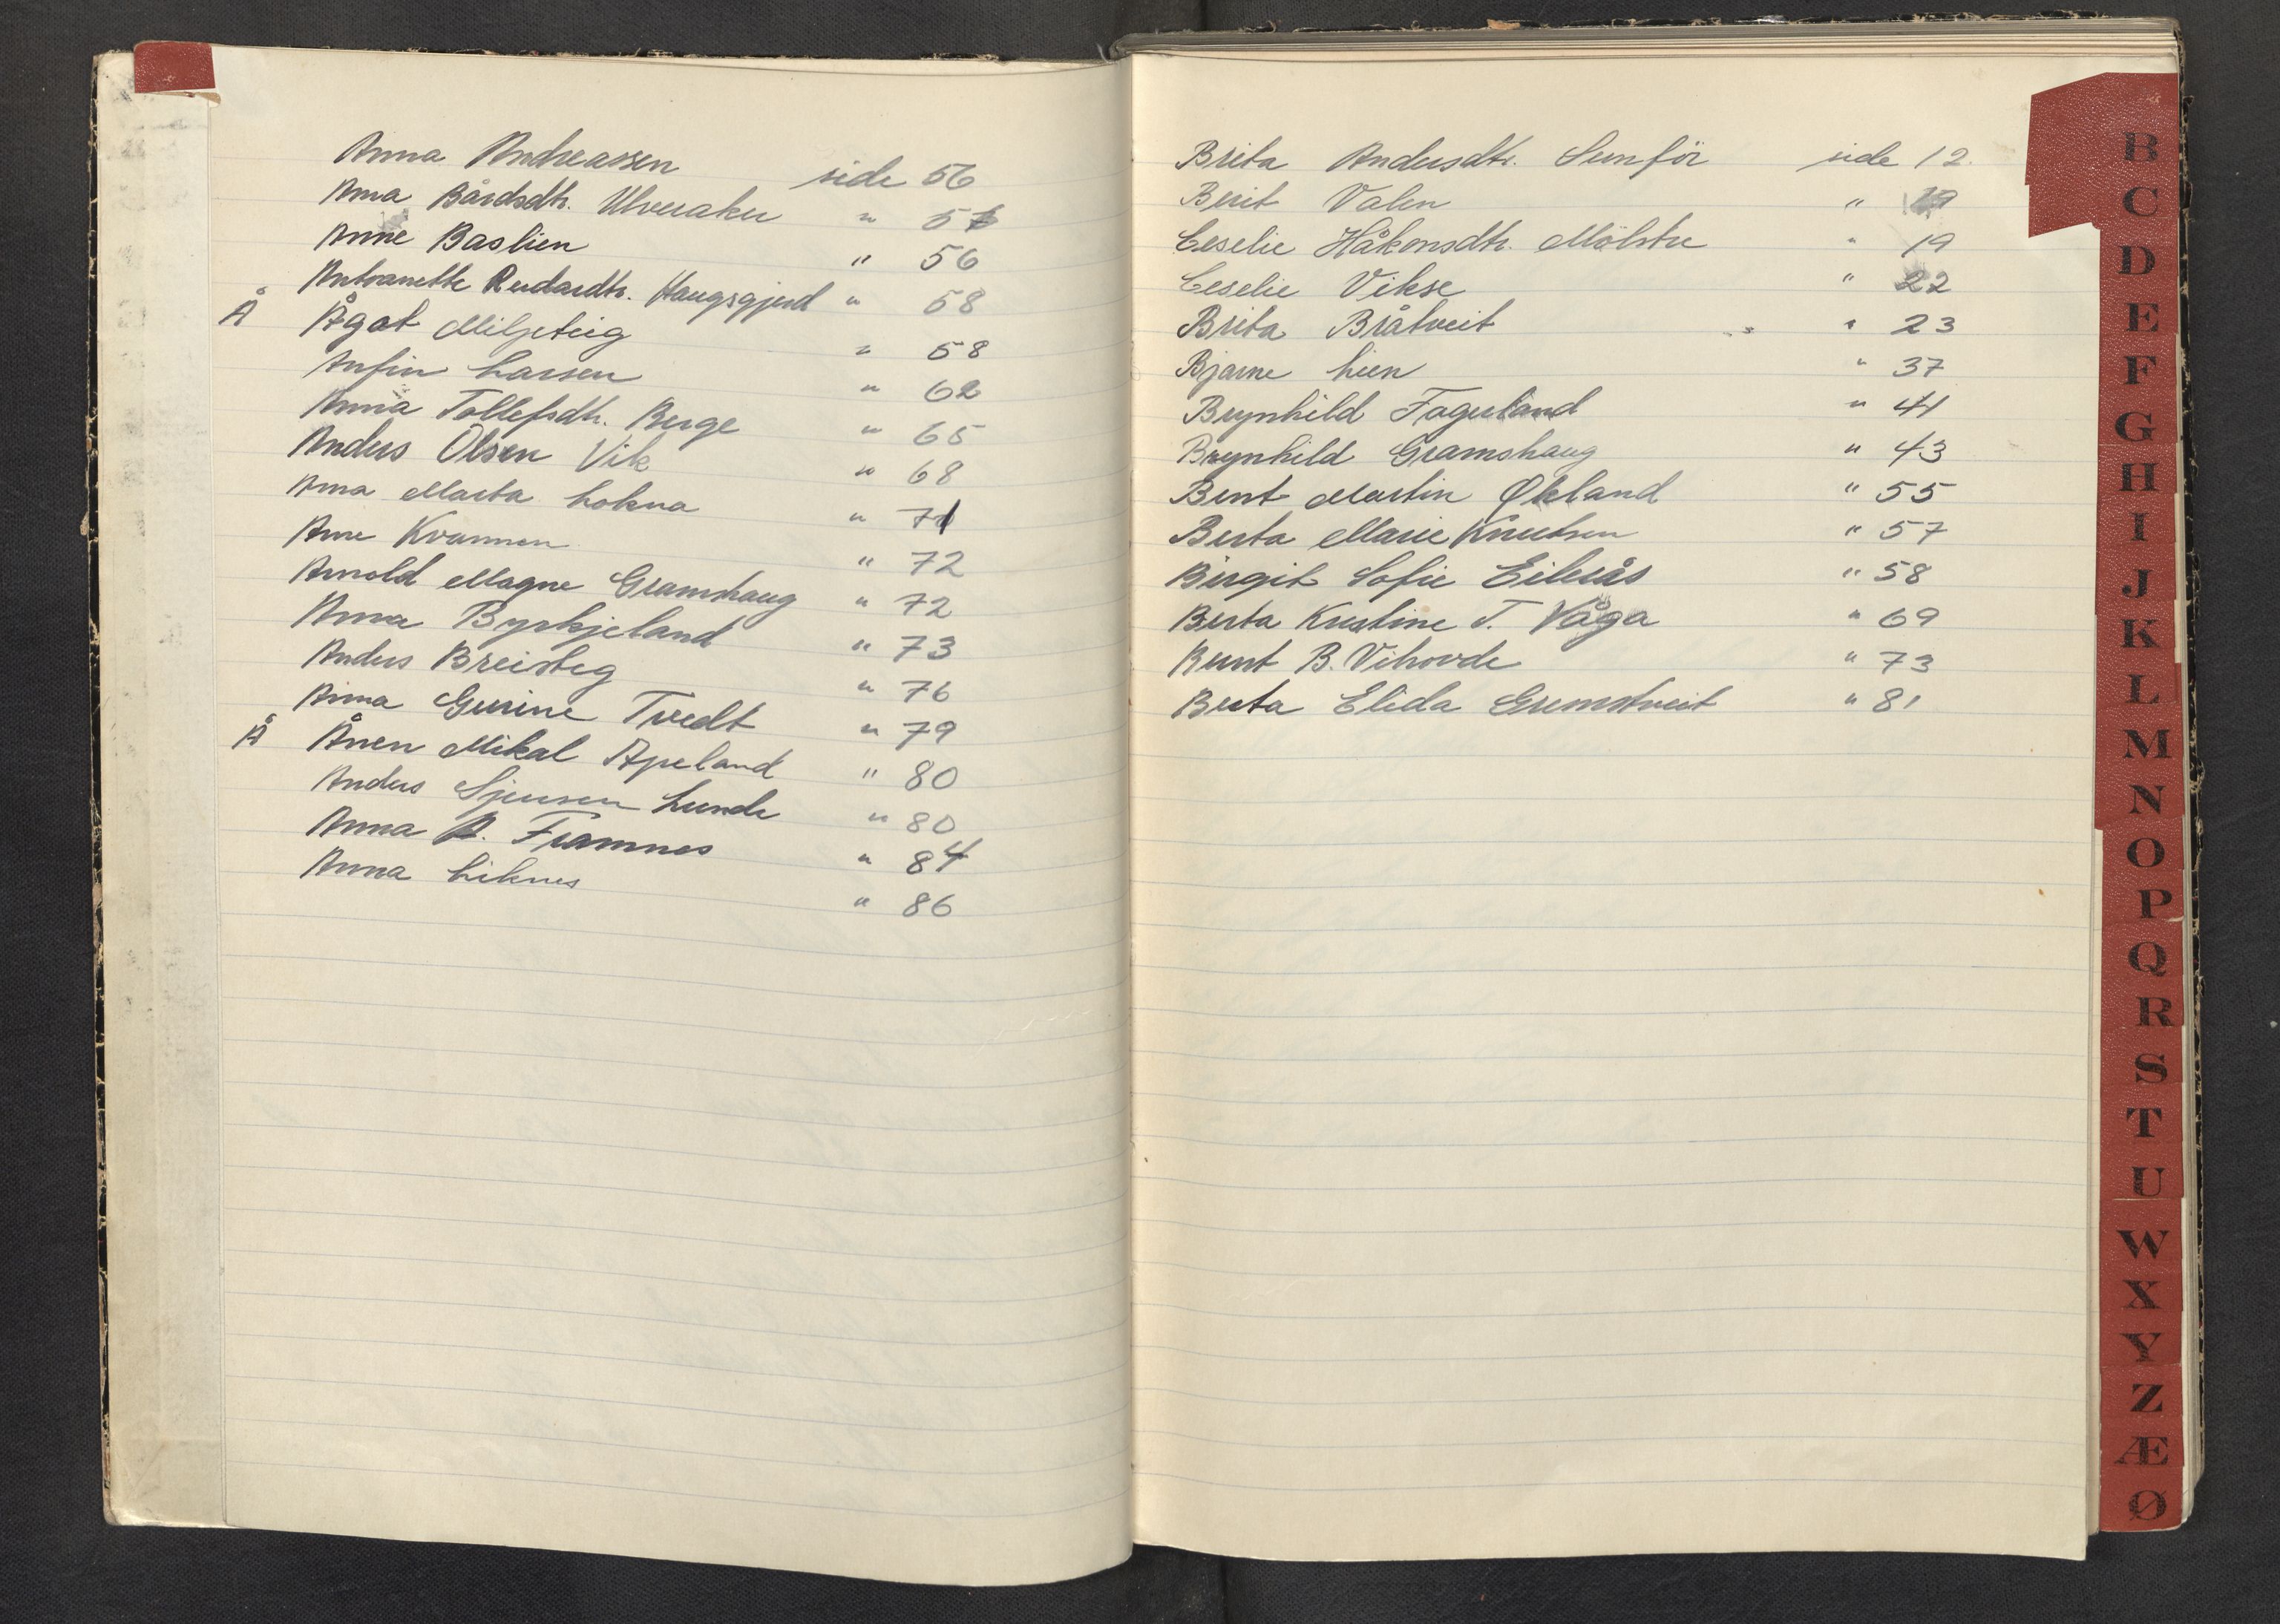 Anna Andreassen side 56
Anna Bårdsdtr. Ulveraker " 57
Anne Baslien " 56
Antoanette Reidardtr. Haugsgjerd " 58
Å Ågot Miljeteig " 58
Anfin Larsen " 62
Anna Tollefsdtr. Berge " 65
Anders Olsen Vik " 68
Anna Marta Lokna " 71
Anne Kvammen " 72
Arnold Magne Gramshaug " 72
Anna Byrkjeland " 73
Anders Breisteg " 76
Anna Gurine Tvedt " 79
Å Ånen Mikal Apeland " 80
Anders Sjursen Lunde " 80
Anna A. Framnes " 84
Anna Liknes " 86
Brita Andersdtr. Sumför side 12.
Berit Valen " 19
Ceselie Håkonsdtr. Mölstre " 19
Ceselie Vikse " 22
Brita Bråtveit " 23
Bjarne Lien " 37
Brynhild Fagerland " 41
Brynhild Gramshaug " 43
Bent Martin Økland " 55
Berta Marie Knutsen " 57
Birgit Sofie Eikeås " 58
Berta Kristine T. Våga " 69
Bernt B. Vihovde " 73
Berta Elida Gremstveit " 81
B
C
D
E
F
G
H
I
J
K
L
M
N
O
P
Q
R
S
T
U
W
X
Y
Z
Æ
Ø